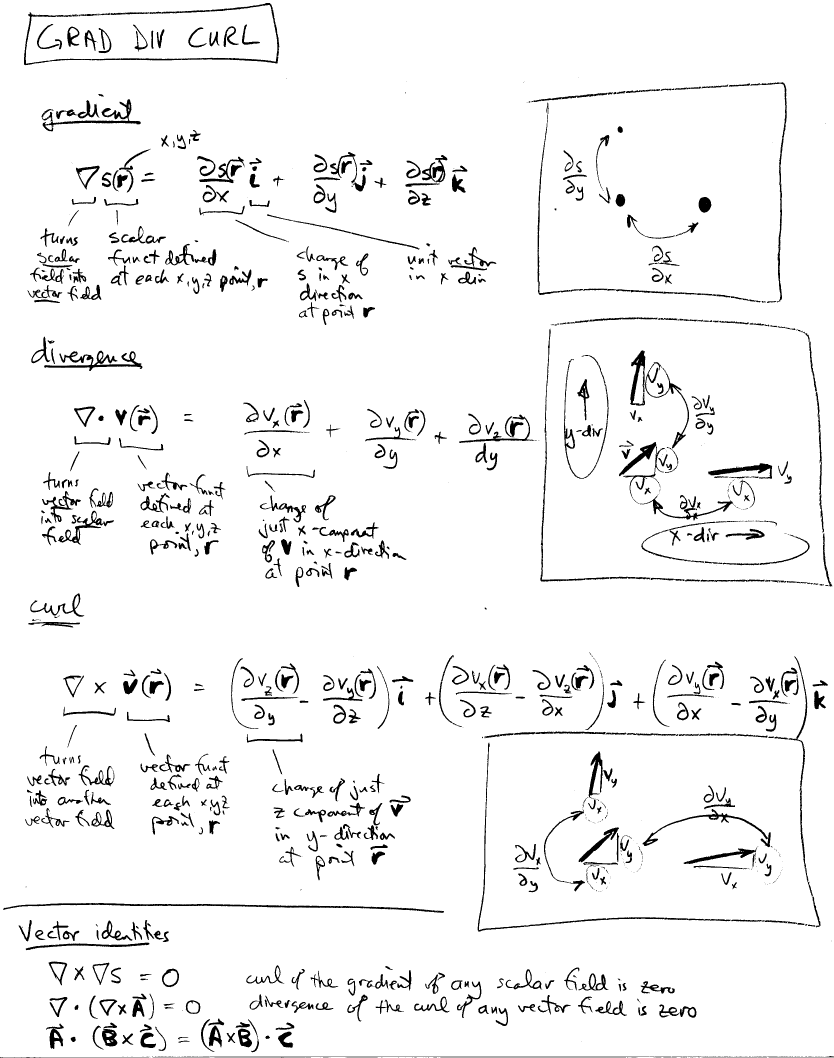 GRAD DIV CURL
gradient
x,y,z
∇s(r⃗) = ∂s(r⃗)/∂x i⃗ + ∂s(r⃗)/∂y j⃗ + ∂s(r⃗)/∂z k⃗
turns
scalar
field into
vector field
scalar
funct defined
at each x,y,z point, r
change of
s in x
direction
at point r
unit vector
in x dir
∂s/∂y
∂s/∂x
divergence
∇· v(r⃗) = ∂vx(r⃗)/∂x + ∂vy(r⃗)/∂y + ∂vz(r⃗)/dy
turns
vector field
into scalar
field
vector funct
defined at
each x,y,z
point, r
change of
just x-component
of v in x-direction
at point r
y-dir
vy
vx
∂vy/∂y
v⃗
vy
vx
vy
vx
∂vx/∂x
x-dir →
curl
∇ × v⃗(r⃗) = (∂vz(r⃗)/∂y - ∂vy(r⃗)/∂z) i⃗ + (∂vx(r⃗)/∂z - ∂vz(r⃗)/∂x) j⃗ + (∂vy(r⃗)/∂x - ∂vx(r⃗)/∂y) k⃗
turns
vector field
into another
vector field
vector funct
defined at
each x,y,z
point, r
change of just
z component of v⃗
in y-direction
at point r⃗
vy
vx
∂vy/∂x
∂vx/∂y
vy
vx
vy
vx
Vector identities
∇×∇s = 0 curl of the gradient of any scalar field is zero
∇·(∇×A⃗) = 0 divergence of the curl of any vector field is zero
A⃗ · (B⃗×C⃗) = (A⃗×B⃗) · C⃗